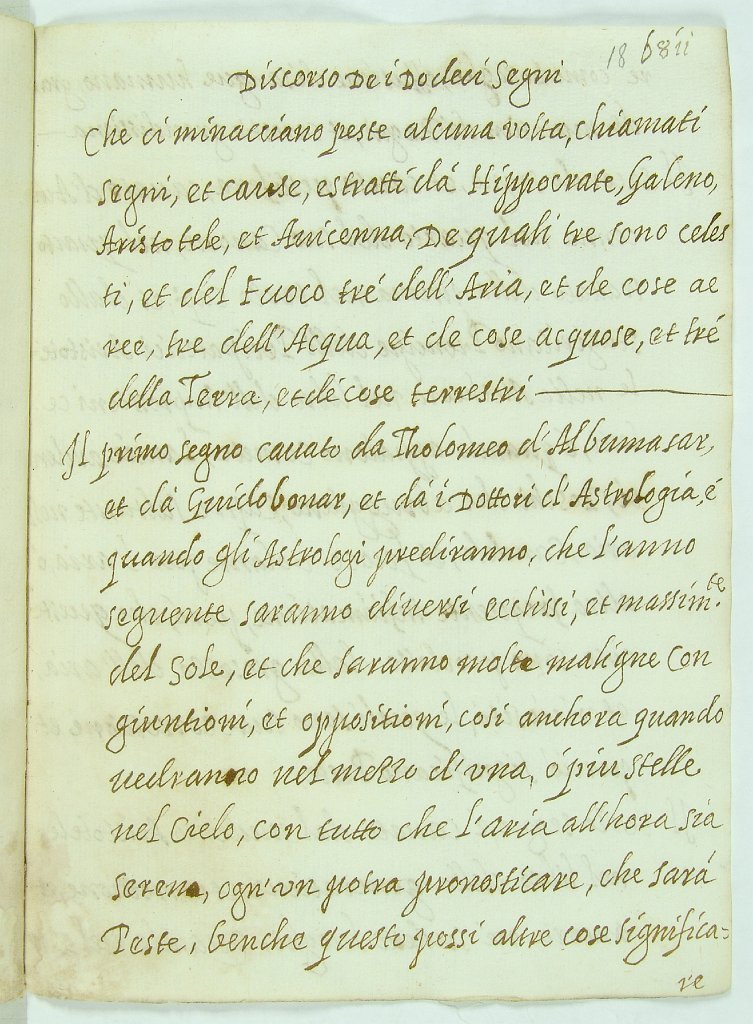 18
Discorso De i Dodeci Segni
Che ci minacciano peste alcuna volta, chiamati
segni, et cause, estratti dà Hippocrate, Galeno,
Aristotele, et Auicenna, De quali tre sono celes
ti, et del Fuoco tré dell'Aria, et de cose ae
ree, tre dell'Acqua, et de cose acquose, et tré
della Terra, et dé cose terrestri
Il primo segno cauato da Tholomeo d'Albumasar,
et dà Guidobonar, et dà i Dottori d'Astrologia, é
quando gli Astrologi prediranno, che l'anno
seguente saranno diuersi ecclissi, et massim.te
del Sole, et che saranno molte maligne con
giuntioni, et oppositioni, cosi anchora quando
uedranno nel mezzo d'una, ó piu stelle
nel Cielo, con tutto che l'aria all'hora sia
serena, ogn'un potra pronosticare, che sarà
Peste, benche questo possi altre cose significa=
re